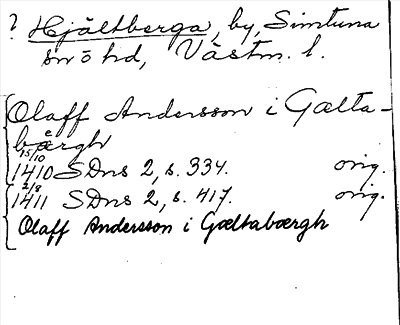 ? Hjältberga, by, Simtuna
snöhd, Västm. l.
Olaff Andersson i Gælta-
bærgh
15/10
1410 SDns 2, s. 334. orig.
2/8
1411 SDns 2, s. 417. orig.
Olaff Andersson i Gæltabærgh